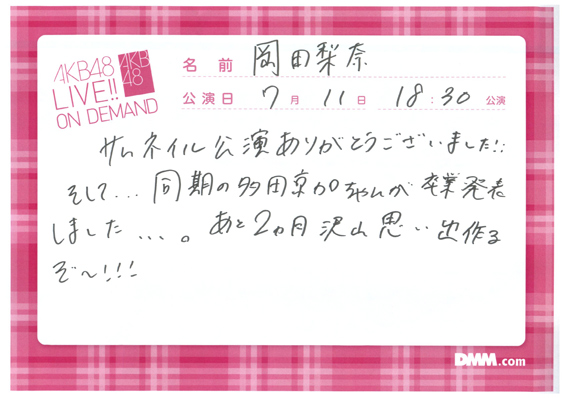 AKB48
LIVE!!
ON DEMAND
AKB
48
名前 岡田梨奈
公演日 7月11日 18:30公演
サムネイル公演ありがとうございました!!
そして...同期の多田京加ちゃんが卒業発表
しました...。あと2ヵ月沢山思い出作る
ぞ〜!!!
DMM.com